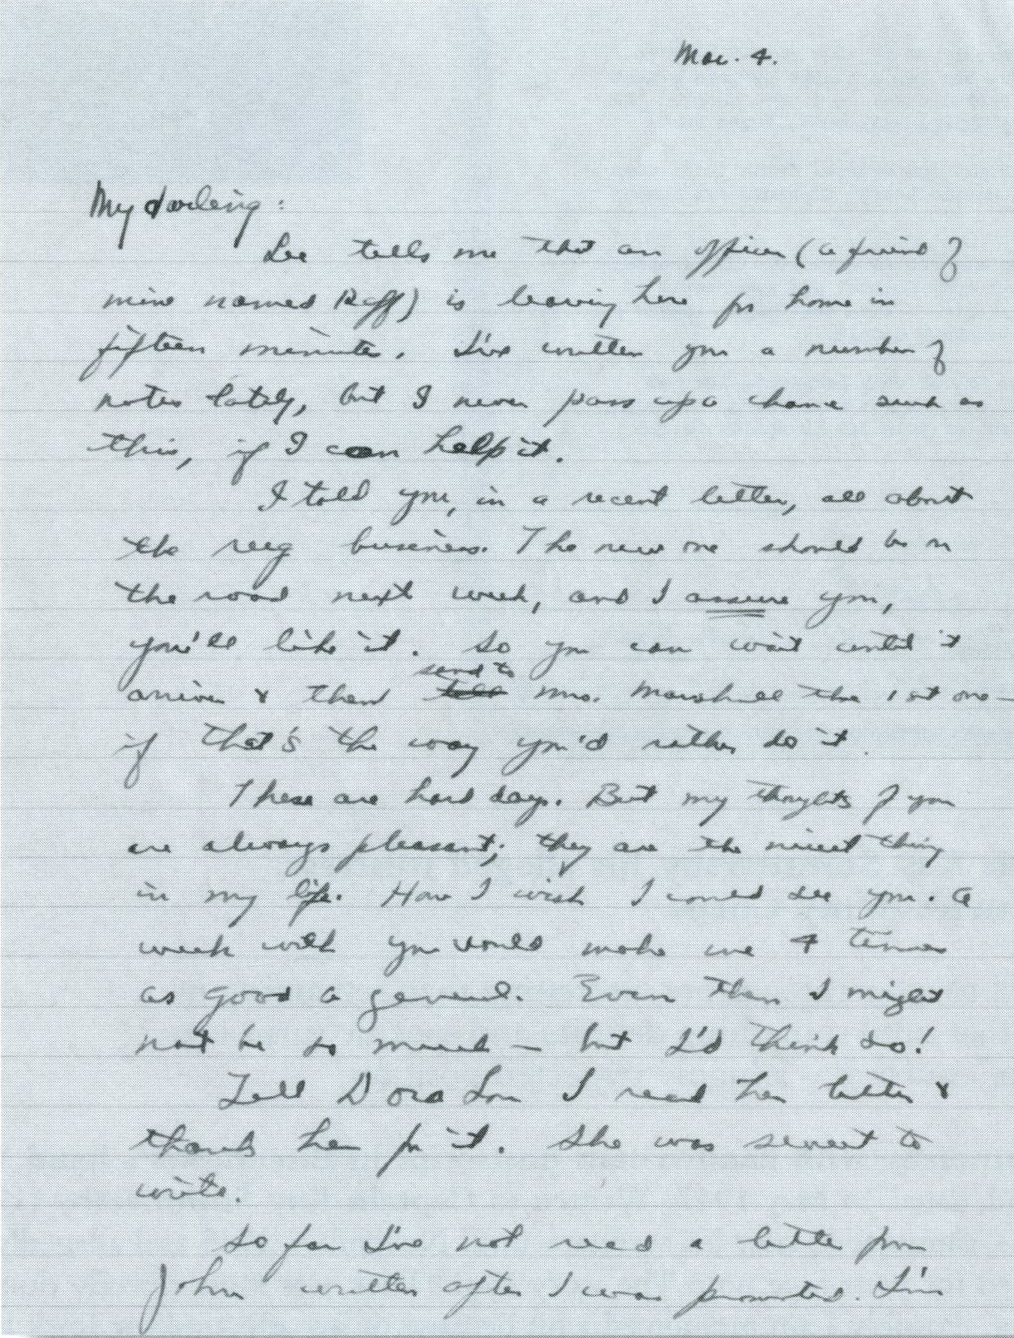 Mar. 4.
My darling:
Lee tells me that an officer (a friend of
mine named Raff) is leaving here for home in
fifteen minutes. I've written you a number of
notes lately, but I never pass up a chance such as
this, if I can help it.
I told you, in a recent letter, all about
the rug business. The new one should be on
the road next week, and I assure you,
you'll like it. So you can wait until it
arrives & then send to Mrs. Marshall the 1st one —
if that's the way you'd rather do it.
These are hard days. But my thoughts of you
are always pleasant; they are the nicest thing
in my life. How I wish I could see you. A
week with you would make me 4 times
as good a general. Even then I might
not be so much — but I'd think so!
Tell Dora Lou I read her letter &
thank her for it. She was sweet to
write.
So far I've not read a letter from
John written after I was promoted. I'm